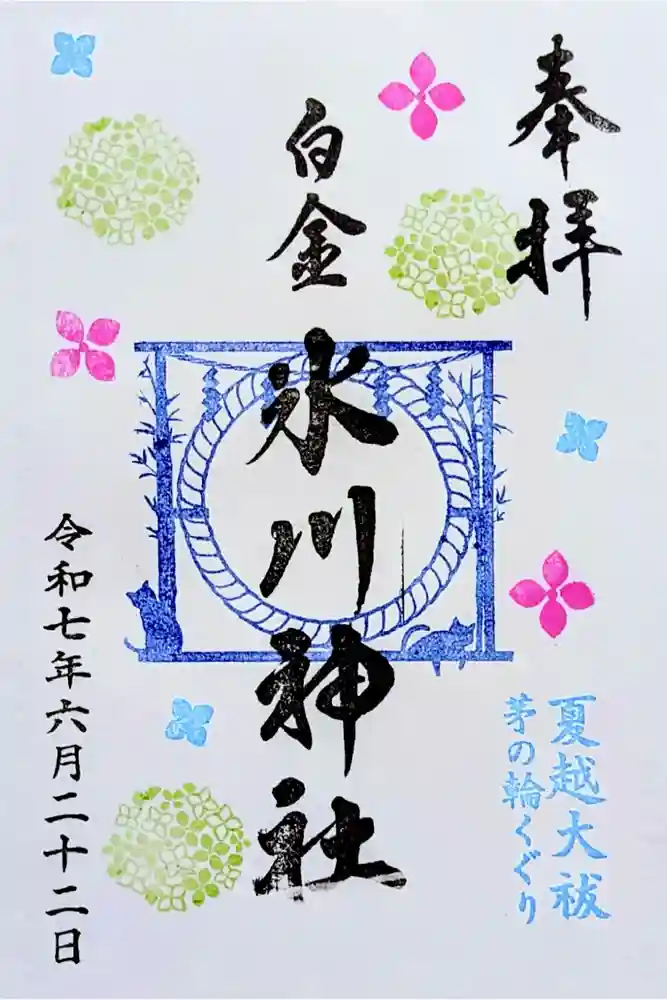 奉拝
白金
氷川神社
夏越大祓
茅の輪くぐり
令和七年六月二十二日